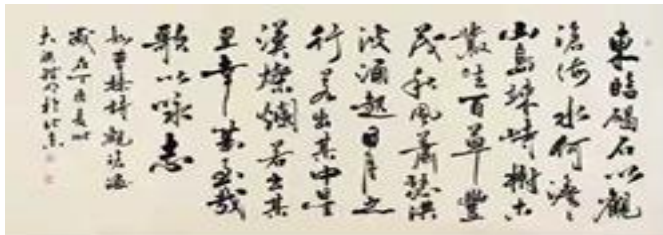 東臨碣石以觀
滄海水何澹〻
山島竦峙樹木
叢生百草豐
茂秋風蕭瑟洪
波涌起日月之
行若出其中星
漢燦爛若出其
里幸甚至哉
歌以咏志
觀滄海
歲在丁酉
於北京